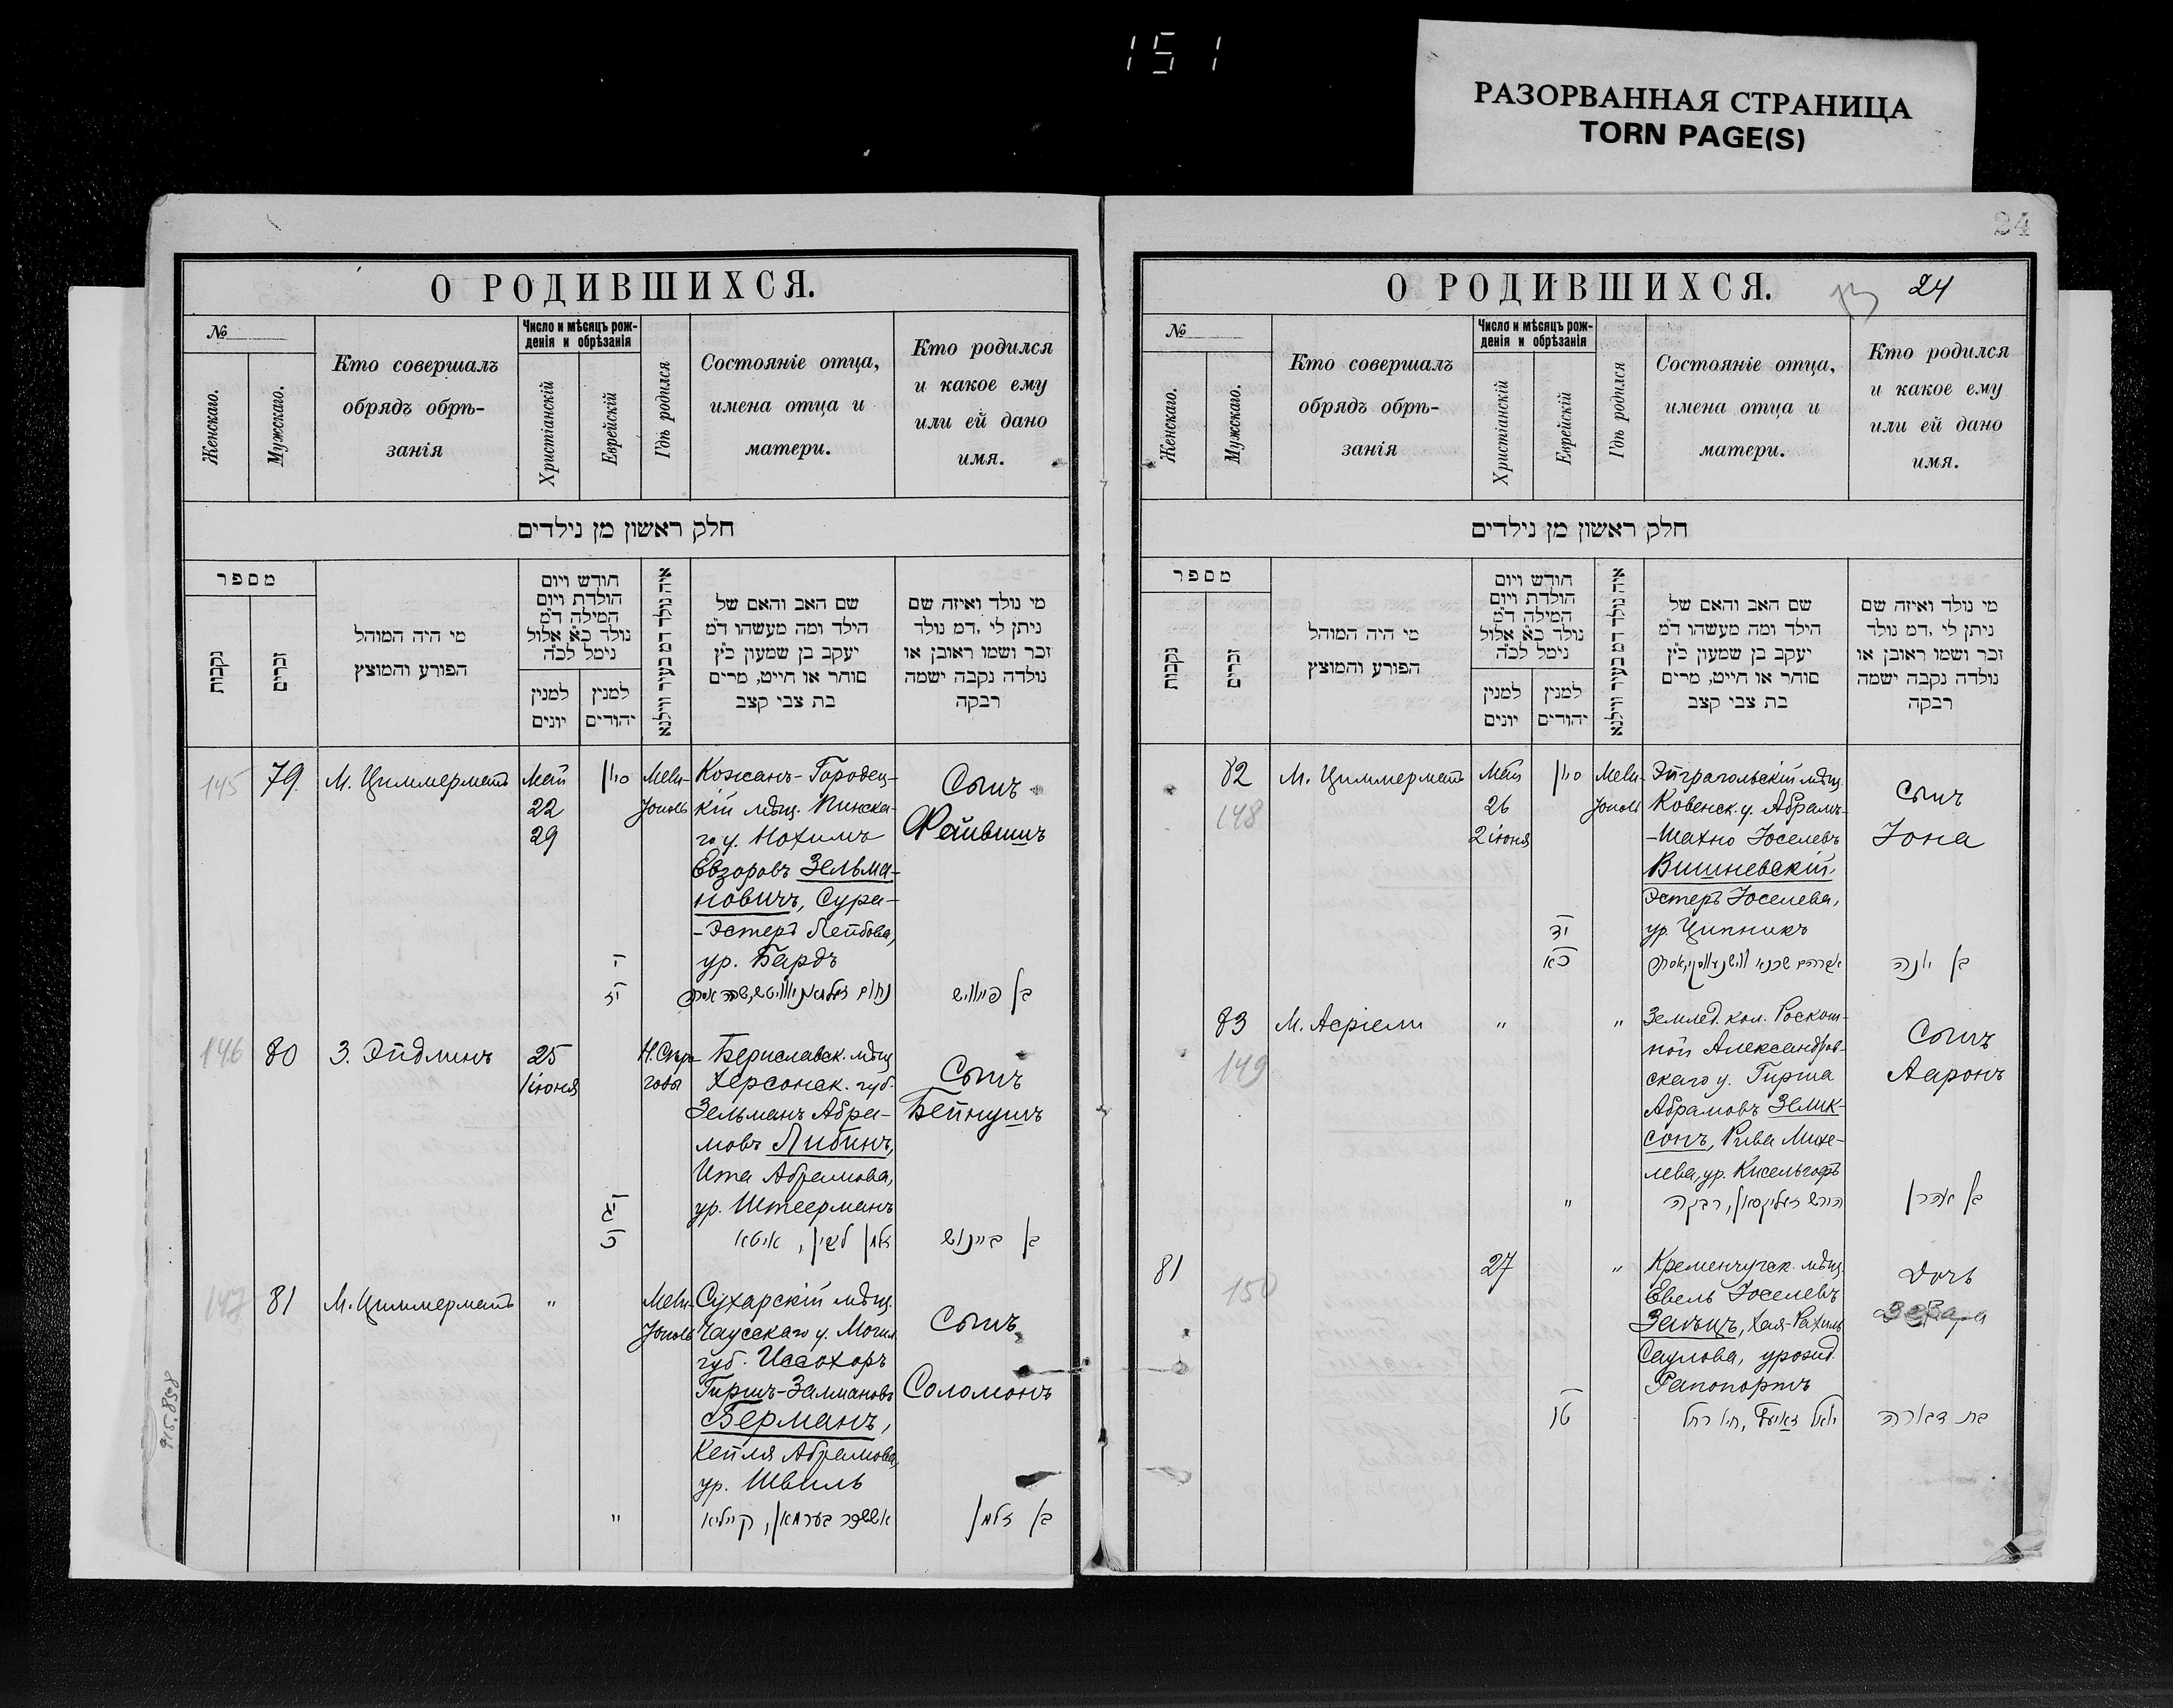 151
РАЗОРВАННАЯ СТРАНИЦА
TORN PAGE(S)
О РОДИВШИХСЯ.
№
Женскаго.
Мужскаго.
Кто совершалъ
обрядъ обрѣ-
занія
Число и мѣсяцъ рож-
денія и обрѣзанія
Христіанскій
Еврейскій
Гдѣ родился
Состояніе отца,
имена отца и
матери.
Кто родился
и какое ему
или ей дано
имя.
חלק ראשון מן נילדים
מספר
נקבות
זכרים
מי היה המוהל
הפורע והמוצץ
חודש ויום
הולדת ויום
המילה ד"מ
נולד כ"א אלול
נימל לכ"ה
למנין
יונים
למנין
יהודים
איה נולד דמ בעיר ווילנא
שם האב והאם של
הילד ומה מעשהו ד"מ
יעקב בן שמעון כ"ץ
סוחר או חייט, מרים
בת צבי קצב
מי נולד ואיזה שם
ניתן לי ,דמ נולד
זכר ושמו ראובן או
נולדה נקבה ישמה
רבקה
145
79.
М. Циммерманъ
Май
22
29
סיון
ה
Мели-
тополь
Кожанъ-Городец-
кій мѣщ. Пинска-
го у. Нохимъ
Евзоровъ Зельма-
новичъ, Сура-
-Эстеръ Лейбова,
ур. Бардъ
Сынъ
Файвишъ
בן פייוויש
146
80
З. Эйдлинъ
25
1 июня
יג
Бериславск. мѣщ
Херсонск. губ.
Зельманъ Абра-
мовъ Либинъ,
Ита Абрамова,
ур. Штеерманъ
זלמן ליבין, איטא
Сынъ
Бейнушъ
בן ביינוש
147
81
М. Циммерманъ
"
"
Мели-
тополь
Сухарскій мѣщ.
Чаусскаго у. Могил
губ. Иссохоръ
Гиршъ-Залмановъ
Берманъ,
Кейля Абрамова,
ур. Швиль
יששכר בערמאן, קיילא
Сынъ
Соломонъ
בן זלמן
915.8598
24
О РОДИВШИХСЯ.
24
№
Женскаго.
Мужскаго.
Кто совершалъ
обрядъ обрѣ-
занія
Число и мѣсяцъ рож-
денія и обрѣзанія
Христіанскій
Еврейскій
Гдѣ родился
Состояніе отца,
имена отца и
матери.
Кто родился
и какое ему
или ей дано
имя.
חלק ראשון מן נילדים
מספר
נקבות
זכרים
מי היה המוהל
הפורע והמוצץ
חודש ויום
הולדת ויום
המילה ד"מ
נולד כ"א אלול
נימל לכ"ה
למנין
יונים
למנין
יהודים
איה נולד דמ בעיר ווילנא
שם האב והאם של
הילד ומה מעשהו ד"מ
יעקב בן שמעון כ"ץ
סוחר או חייט, מרים
בת צבי קצב
מי נולד ואיזה שם
ניתן לי ,דמ נולד
זכר ושמו ראובן או
נולדה נקבה ישמה
רבקה
82
148
М. Циммерманъ
Май
26
2 июня
סיון
יד
כא
Мели-
тополь
Эйрагольскій мѣщ.
Ковенск. у. Абрамъ-
-Шахно Іоселевъ
Вишневскій,
Эстеръ Іоселева,
ур. Ципникъ
Сынъ
Іона
בן יונה
83
149
М. Асріели
"
"
"
Землед. кол. Роскош-
ной Александров-
скаго у. Гирша
Абрамовъ Зелик-
сонъ, Рива Михе-
лева, ур. Кисельгофъ
הירש זעליקסאן, רבקה
Сынъ
Ааронъ
בן אהרן
81
150
27
טו
"
Кременчугск. мѣщ.
Евель Іоселевъ
Заецъ, Хая-Рахиль
Саулова, урожд.
Рапопортъ
Дочь
בת דבורה